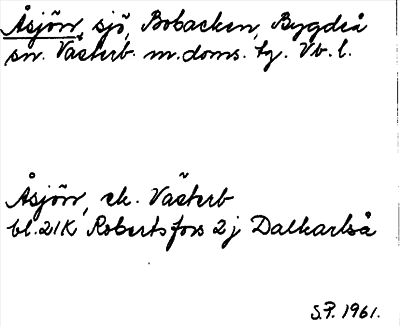 Åsjön, sjö, Bobacken, Bygdeå
sn. Västerb. m. doms. tg. Vb. l.
Åsjön, ek. Västerb
bl. 21K Robertsfors 2j Dalkarlså
S.P. 1961.